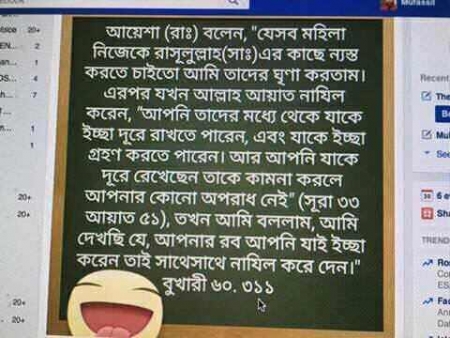 Mufassil
আয়েশা (রাঃ) বলেন, "যেসব মহিলা
নিজেকে রাসূলুল্লাহ(সাঃ)এর কাছে ন্যস্ত
করতে চাইতো আমি তাদের ঘৃণা করতাম।
এরপর যখন আল্লাহ আয়াত নাযিল
করেন, "আপনি তাদের মধ্যে থেকে যাকে
ইচ্ছা দূরে রাখতে পারেন, এবং যাকে ইচ্ছা
গ্রহণ করতে পারেন। আর আপনি যাকে
দূরে রেখেছেন তাকে কামনা করলে
আপনার কোনো অপরাধ নেই" (সূরা ৩৩
আয়াত ৫১), তখন আমি বললাম, আমি
দেখছি যে, আপনার রব আপনি যাই ইচ্ছা
করেন তাই সাথেসাথে নাযিল করে দেন।"
বুখারী ৬০. ৩১১
20+
EN... 2
1
DS... 4
7
1
1
20+
20+
20+
Recent
The
Mul
See
6 e
Sha
TREND
Ro
Con
ES
Fac
Ann
Dat